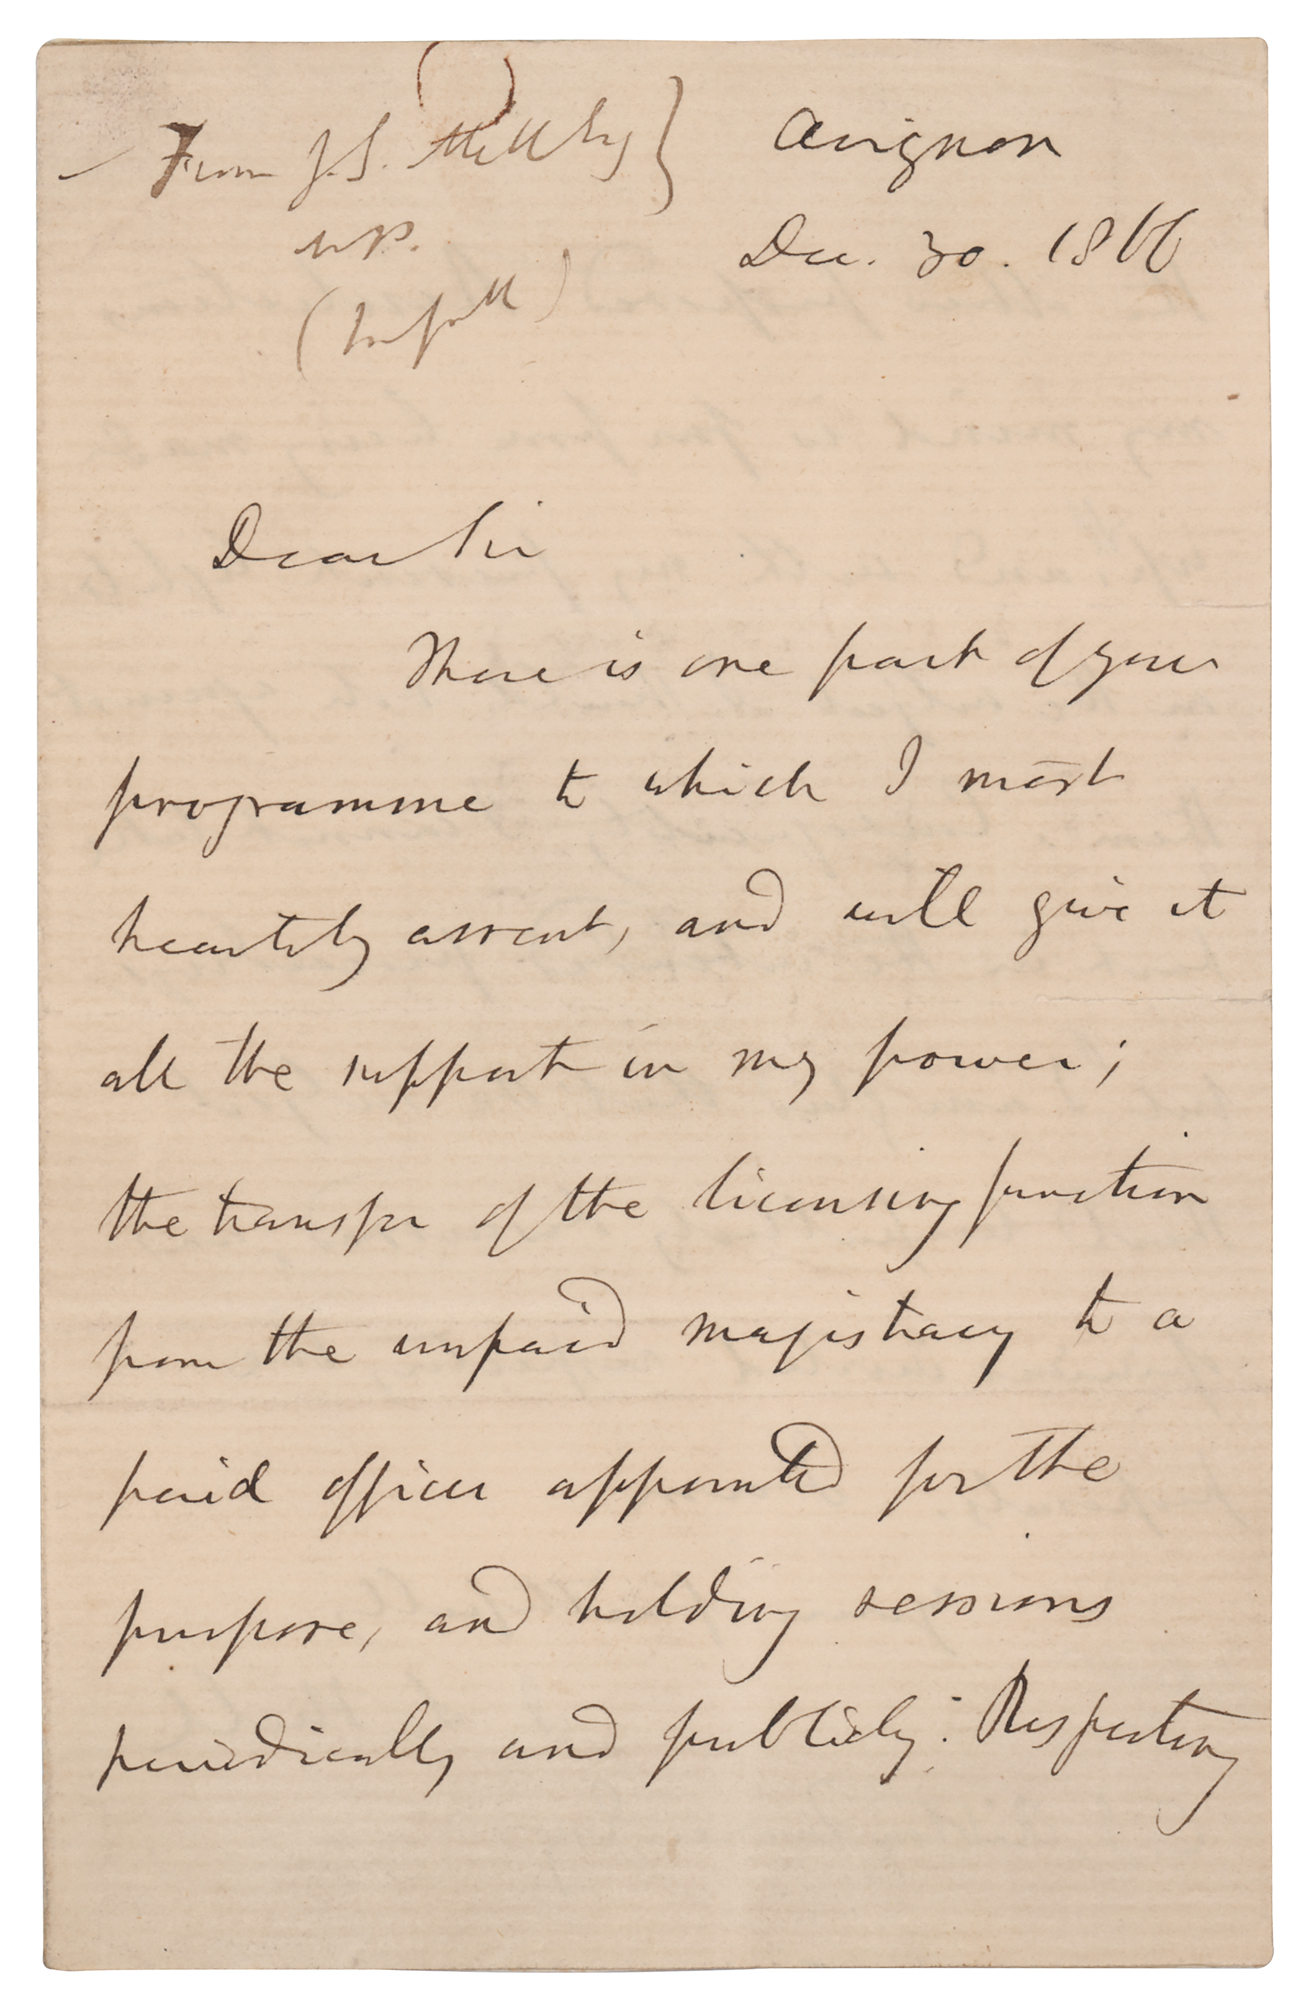 From J. S. Mill Esq
M.P.
Avignon
Dec. 30. 1866
Dear Sir
There is one part of your
programme to which I most
heartily assent, and will give it
all the support in my power;
the transfer of the licensing function
from the unpaid magistracy to a
paid officer appointed for the
purpose, and holding sessions
periodically and publicly. Respecting